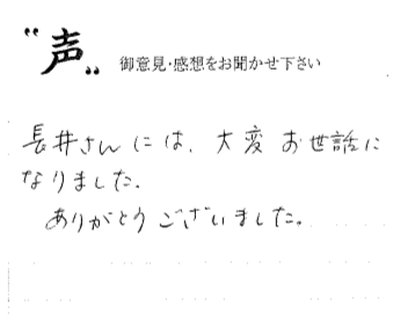 "声"
御意見・感想をお聞かせ下さい
長井さんには、大変お世話に
なりました.
ありがとうございました。